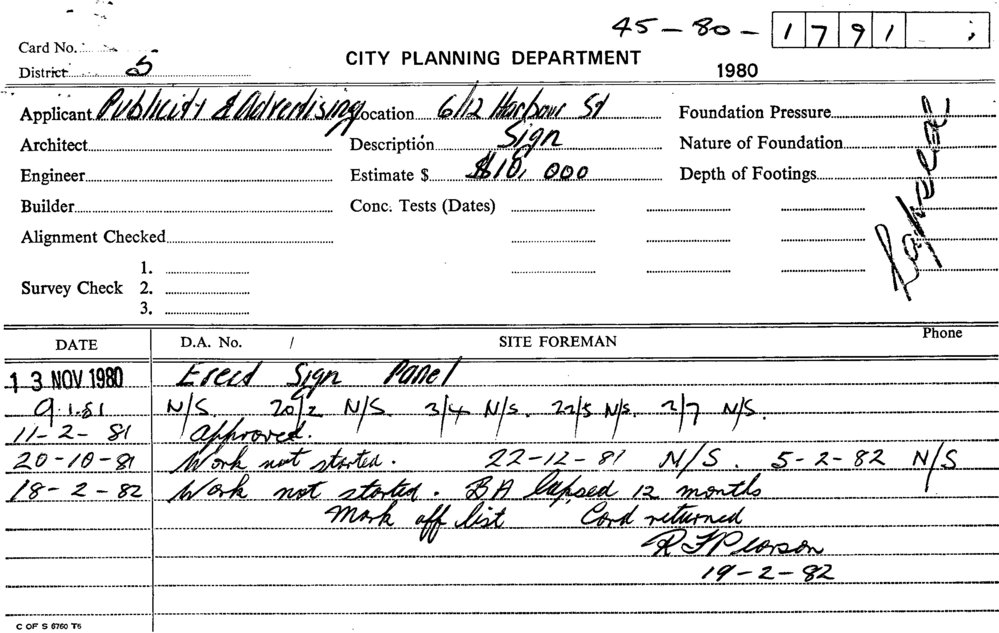 45-80-1791
Card No.
CITY PLANNING DEPARTMENT
District S
1980
Applicant Publicity & Advertising Location 6/12 Harbour St Foundation Pressure
Architect Description Sign Nature of Foundation
Engineer Estimate $ $10,000 Depth of Footings
Builder Conc. Tests (Dates)
Alignment Checked
Lapsed
1.
Survey Check 2.
3.
DATE D.A. No. / SITE FOREMAN Phone
13 NOV 1980 Erect Sign Panel
9.1.81 N/S. 20/2 N/S. 3/4 N/S. 22/5 N/S. 2/7 N/S.
11-2-81 Approved.
20-10-81 Work not started. 22-12-81 N/S. 5-2-82 N/S
18-2-82 Work not started. BA lapsed 12 months
Mark off list Card returned
R F Pearson
19-2-82
C OF S 6760 T6